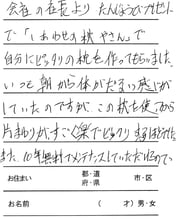 会社の社長より たんじょうびプレゼント
で「しあわせの枕やさん」で
自分にピッタリの枕を作ってもらいました。
いつも朝から体がだるい感じが
していたのですが、この枕を使ってから
肩まわりがすごく楽でビックリするほどです。
また、10年無料でメンテナンスしていただけるので
お住まい 都・道 府・県 市・区
お名前 ( 才) 男・女